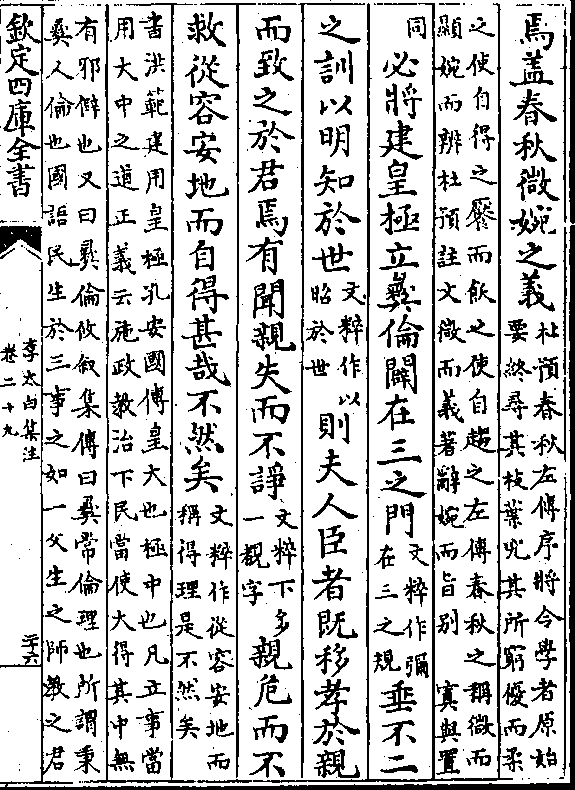 焉盖春秋微婉之義杜預春秋左傳序將令學者原始
要終尋其枝葉究其所窮優而柔
之使自得之饜而飫之使自趨之左傳春秋之稱微而
顯婉而辨杜預註文微而義著辭婉而旨别　寘與置
同必將建皇極立彞倫闢在三之門文粹作彌
在三之規垂不二
之訓以明知於世文粹作以
昭於世則夫人臣者既移孝於親
而致之於君焉有聞親失而不諍文粹下多
一觀字親危而不
救從容安地而自得甚哉不然矣文粹作從容安地而
稱得理是不然矣
書洪範建用皇極孔安國傳皇大也極中也凡立事當
用大中之道正義云施政教治下民當使大得其中無
有邪僻也又曰彞倫攸叙集傳曰彞常倫理也所謂秉
彞人倫也國語民生於三事之如一父生之師教之君
欽定四庫全書
李太白集注
卷二十九
三六